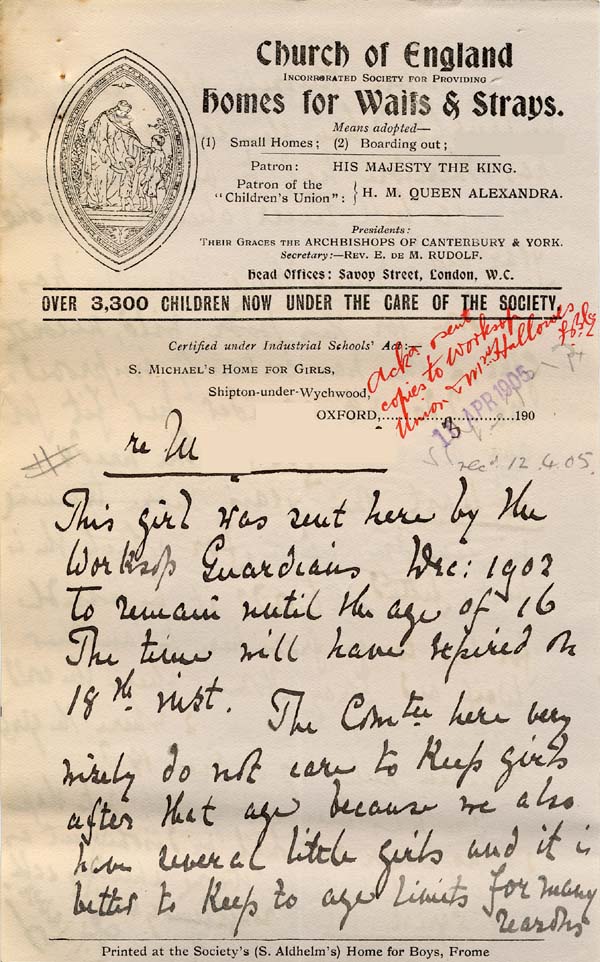 Church of England
INCORPORATED SOCIETY FOR PROVIDING
Homes for Waifs & Strays.
Means adopted—
(1) Small Homes; (2) Boarding out;
Patron: HIS MAJESTY THE KING.
Patron of the
"Children's Union": H. M. QUEEN ALEXANDRA.
Presidents:
THEIR GRACES THE ARCHBISHOPS OF CANTERBURY & YORK.
Secretary:—REV. E. DE M. RUDOLF.
Head Offices: Savoy Street, London, W.C.
OVER 3,300 CHILDREN NOW UNDER THE CARE OF THE SOCIETY.
Certified under Industrial Schools' Act:—
S. MICHAEL'S HOME FOR GIRLS,
Shipton-under-Wychwood,
OXFORD,..............................190
Ackd & sent
copies to Worksop
Union & Mrs Hallowes
13 APR 1905
recd 12.4.05.
re M
This girl was sent here by the
Worksop Guardians Dec: 1903
To remain until the age of 16
The time will have expired on
18th inst. The Comtee here very
wisely do not care to keep girls
after that age because we also
have several little girls and it is
better to keep to age limits for many
reasons
Printed at the Society's (S. Aldhelm's) Home for Boys, Frome